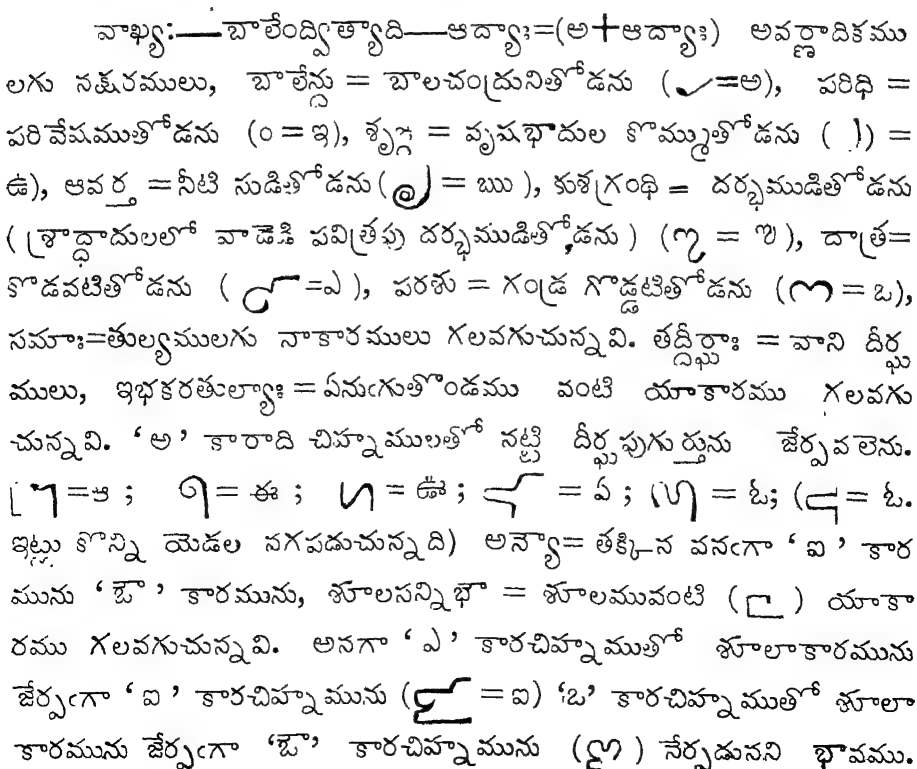 వాఖ్య:—బాలేంద్విత్యాది—ఆద్యాః=(అ+ఆద్యాః) అవర్ణాదికము
లగు నక్షరములు, బాలేన్దు = బాలచంద్రునితోడను ( =అ), పరిధి =
పరివేషముతోడను (o = ఇ), శృఙ్గ = వృషభాదుల కొమ్ముతోడను ( ) =
ఉ), ఆవర్త =నీటి సుడితోడను( = ఋ ), కుశగ్రంథి = దర్భముడితోడను
(శ్రాద్ధాదులలో వాడెడి పవిత్రపు దర్భముడితో,డను) ( = ), దాత్ర=
కొడవటితోడను ( =ఎ), పరశు = గండ్ర గొడ్డటితోడను ( = ఒ),
సమాః=తుల్యములగు నాకారములు గలవగుచున్నవి. తద్దీర్ఘాః = వాని దీర్ఘ
ములు, ఇభకరతుల్యాః = ఏనుఁగుతొండము వంటి యాకారము గలవగు
చున్నవి. ‘అ’ కారాది చిహ్నములతో నట్టి దీర్ఘపుగుర్తును జేర్పవలెను.
[ =ఆ ; = ఈ ; = ఊ ; = ఏ ; = ఓ; ( = ఓ.
ఇట్లు కొన్ని యెడల నగపడుచున్నది) అన్యౌ= తక్కిన వనఁగా ‘ఐ’ కార
మును ‘ఔ’ కారమును, శూలసన్నిభౌ = శూలమువంటి ( ) యాకా
రము గలవగుచున్నవి. అనగా ‘ఎ’ కారచిహ్నముతో శూలాకారమును
జేర్పఁగా ‘ఐ’ కారచిహ్నమును ( = ఐ) ‘ఒ’ కారచిహ్నముతో శూలా
కారమును జేర్పఁగా ‘ఔ’ కారచిహ్నమును ( ) నేర్పడునని భావము.